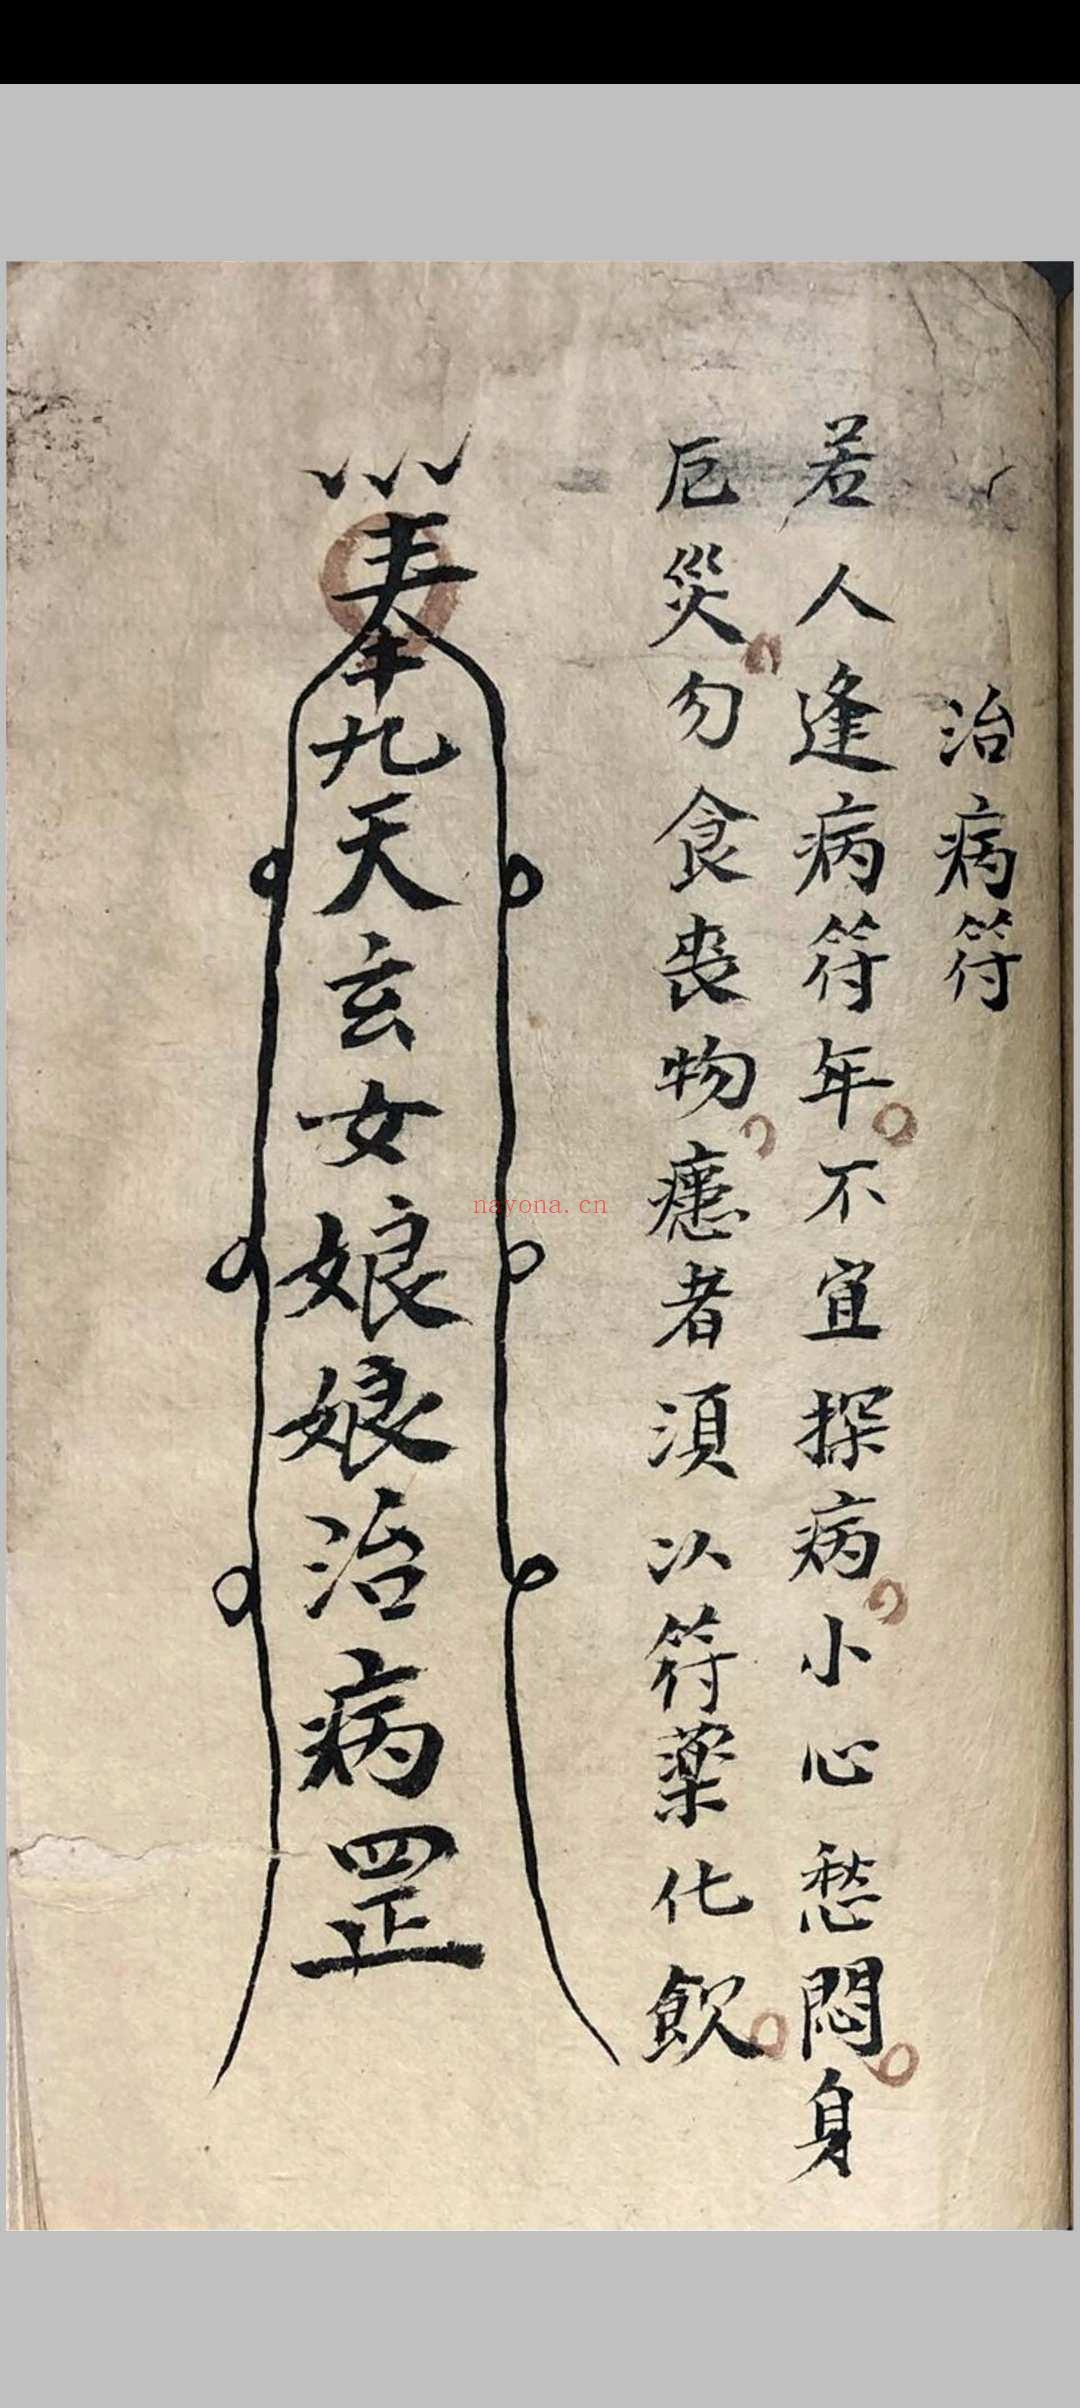 治病符
若人逢病符年不宜探病小心愁悶身
厄災勿食喪物癒者須以符藥化飲
奉九天玄女娘娘治病罡
nayona.cn